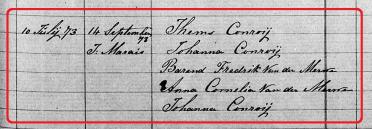 10 Julij 73 14 September 73 Thems Conroij
J. Marais Johanna Conroij
Barend Fredrik Van der Merwe
Anna Cornelia Van der Merwe
Johanna Conroij